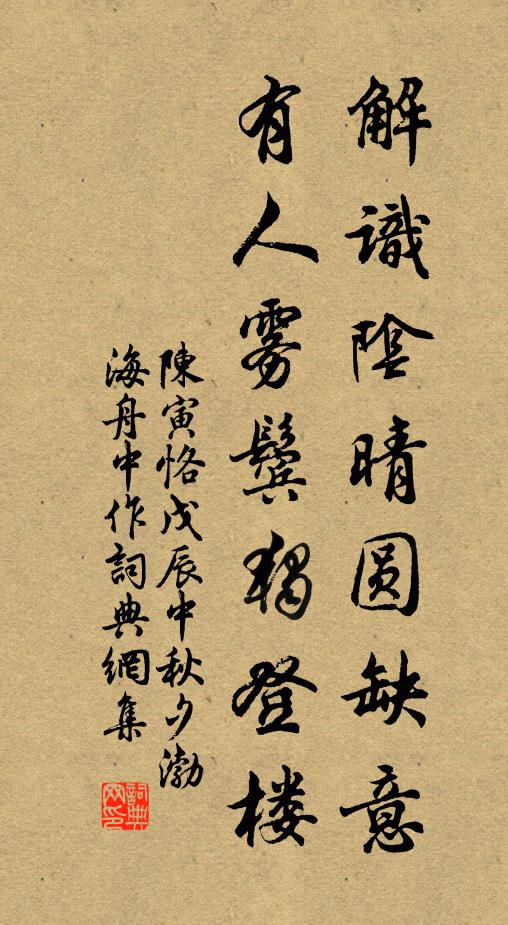 解識陰晴圆缺意
有人雾鬓独登楼
陳寅恪戊辰中秋夕渤
海舟中作詞典網集
詞典
网印